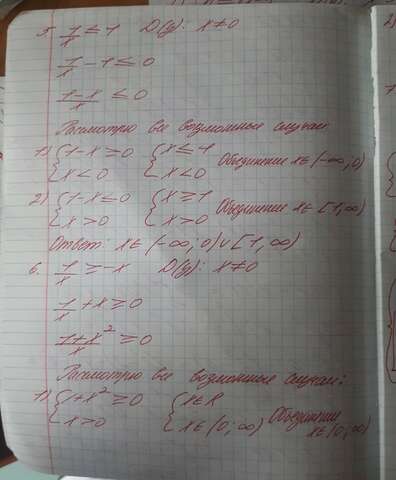 5. 1/x ≤ 1 D(y): x≠0
1/x - 1 ≤ 0
1-x/x ≤ 0
Рассмотрю все возможные случаи
1) {1-x ≥ 0 {x ≤ 1 Объединение x∈(-∞;0)
{x < 0 {x < 0
2) {1-x ≤ 0 {x ≥ 1 Объединение x∈[1,∞)
{x > 0 {x > 0
Ответ: x∈(-∞;0)∪[1,∞)
6. 1/x ≥ -x D(y): x≠0
1/x + x ≥ 0
1+x²/x ≥ 0
Рассмотрю все возможные случаи:
1) {1+x² ≥ 0 {x∈R Объединение
{x > 0 {x∈(0;∞) x∈(0;∞)